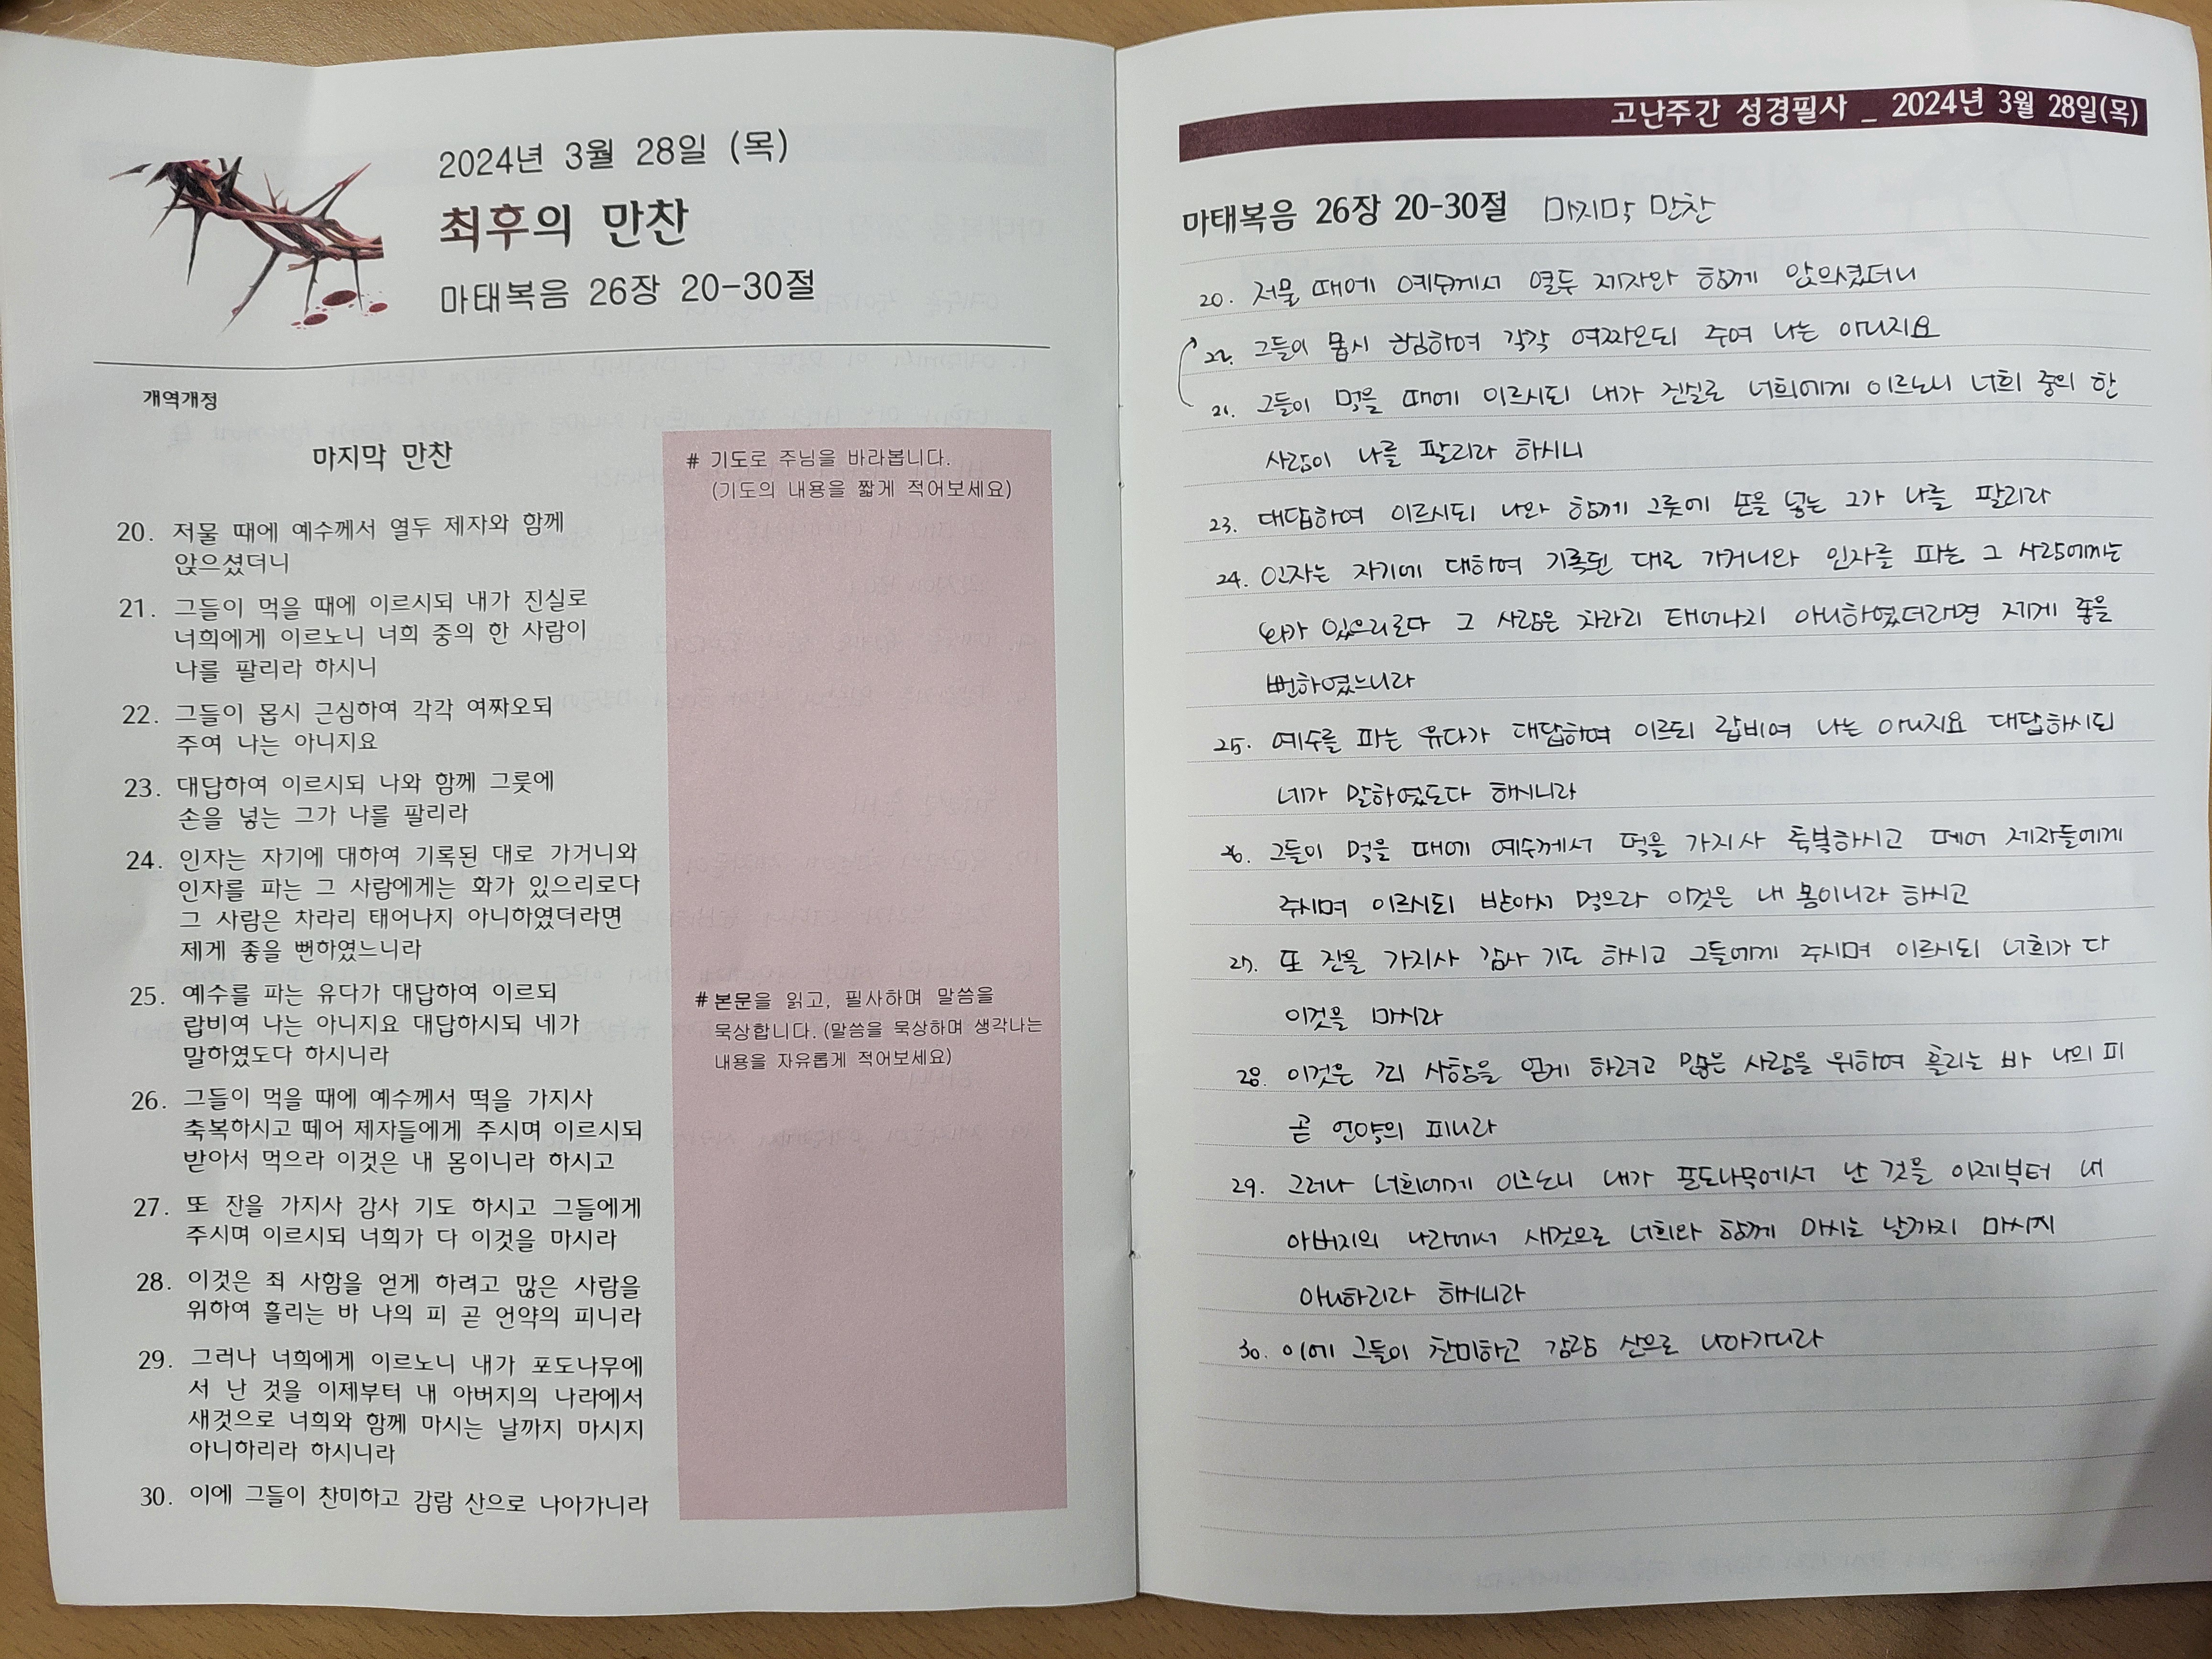 2024년 3월 28일 (목)
최후의 만찬
마태복음 26장 20-30절
개역개정
마지막 만찬
20. 저물 때에 예수께서 열두 제자와 함께
앉으셨더니
21. 그들이 먹을 때에 이르시되 내가 진실로
너희에게 이르노니 너희 중의 한 사람이
나를 팔리라 하시니
22. 그들이 몹시 근심하여 각각 여짜오되
주여 나는 아니지요
23. 대답하여 이르시되 나와 함께 그릇에
손을 넣는 그가 나를 팔리라
24. 인자는 자기에 대하여 기록된 대로 가거니와
인자를 파는 그 사람에게는 화가 있으리로다
그 사람은 차라리 태어나지 아니하였더라면
제게 좋을 뻔하였느니라
25. 예수를 파는 유다가 대답하여 이르되
랍비여 나는 아니지요 대답하시되 네가
말하였도다 하시니라
26. 그들이 먹을 때에 예수께서 떡을 가지사
축복하시고 떼어 제자들에게 주시며 이르시되
받아서 먹으라 이것은 내 몸이니라 하시고
27. 또 잔을 가지사 감사 기도 하시고 그들에게
주시며 이르시되 너희가 다 이것을 마시라
28. 이것은 죄 사함을 얻게 하려고 많은 사람을
위하여 흘리는 바 나의 피 곧 언약의 피니라
29. 그러나 너희에게 이르노니 내가 포도나무에
서 난 것을 이제부터 내 아버지의 나라에서
새것으로 너희와 함께 마시는 날까지 마시지
아니하리라 하시니라
30. 이에 그들이 찬미하고 감람 산으로 나아가니라
# 기도로 주님을 바라봅니다.
(기도의 내용을 짧게 적어보세요)
# 본문을 읽고, 필사하며 말씀을
묵상합니다. (말씀을 묵상하며 생각나는
내용을 자유롭게 적어보세요)
고난주간 성경필사 _ 2024년 3월 28일(목)
마태복음 26장 20-30절 마지막 만찬
20. 저물 때에 예수께서 열두 제자와 함께 앉으셨더니
22. 그들이 몹시 근심하여 각각 여짜오되 주여 나는 아니지요
21. 그들이 먹을 때에 이르시되 내가 진실로 너희에게 이르노니 너희 중의 한
사람이 나를 팔리라 하시니
23. 대답하여 이르시되 나와 함께 그릇에 손을 넣는 그가 나를 팔리라
24. 인자는 자기에 대하여 기록된 대로 가거니와 인자를 파는 그 사람에게는
화가 있으리로다 그 사람은 차라리 태어나지 아니하였더라면 제게 좋을
뻔하였느니라
25. 예수를 파는 유다가 대답하여 이르되 랍비여 나는 아니지요 대답하시되
네가 말하였도다 하시니라
26. 그들이 먹을 때에 예수께서 떡을 가지사 축복하시고 떼어 제자들에게
주시며 이르시되 받아서 먹으라 이것은 내 몸이니라 하시고
27. 또 잔을 가지사 감사 기도 하시고 그들에게 주시며 이르시되 너희가 다
이것을 마시라
28. 이것은 죄 사함을 얻게 하려고 많은 사람을 위하여 흘리는 바 나의 피
곧 언약의 피니라
29. 그러나 너희에게 이르노니 내가 포도나무에서 난 것을 이제부터 내
아버지의 나라에서 새것으로 너희와 함께 마시는 날까지 마시지
아니하리라 하시니라
30. 이에 그들이 찬미하고 감람 산으로 나아가니라